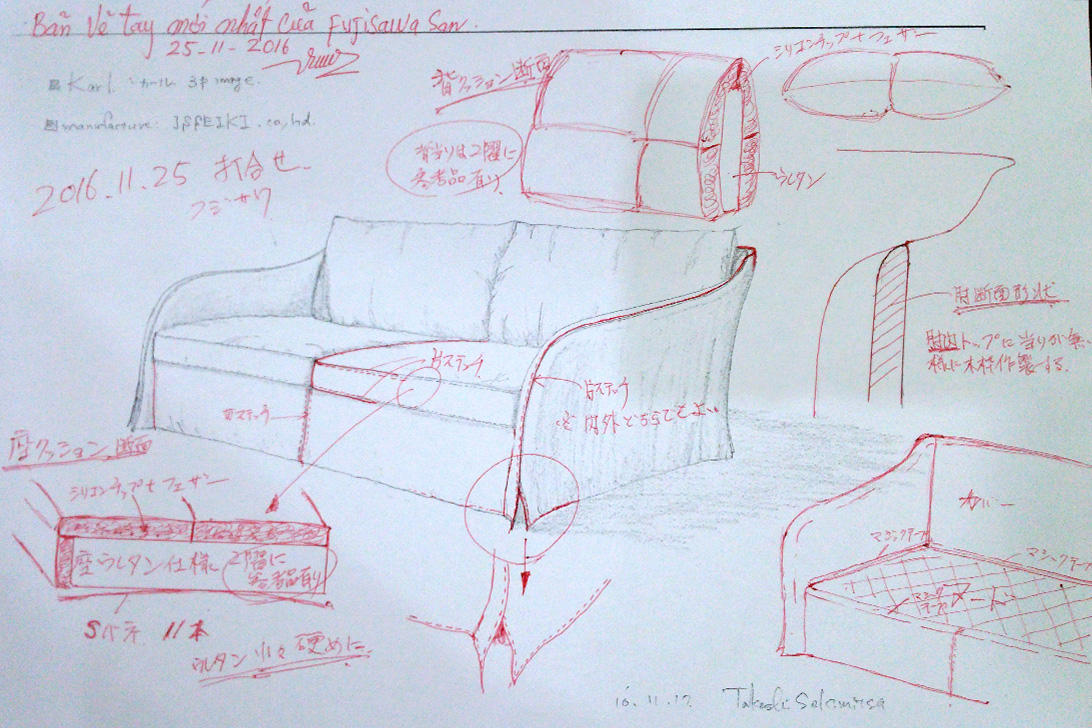 Bản vẽ tay mới nhất của Fujisawa San.
25-11-2016
Karl. カール 3P image.
manufacture: IPPEIKI.co,ltd.
2016.11.25 打合せ
フジサワ
背クッション断面
シリコンチップ+フェザー
背当りは2階に
参考品有り
ウレタン
肘断面形状
肘内トップに当りが無い
様に木枠作製する.
片ステッチ
片ステッチ
片ステッチ
内外どちらでもよい
座クッション断面
シリコンチップ+フェザー
座ウレタン仕様
2階に
参考品有り
Sバネ 11本
ウレタン少々硬めに
カバー
マジックテープ
マジックテープ
マジックテープ
16.11.17. Takeshi